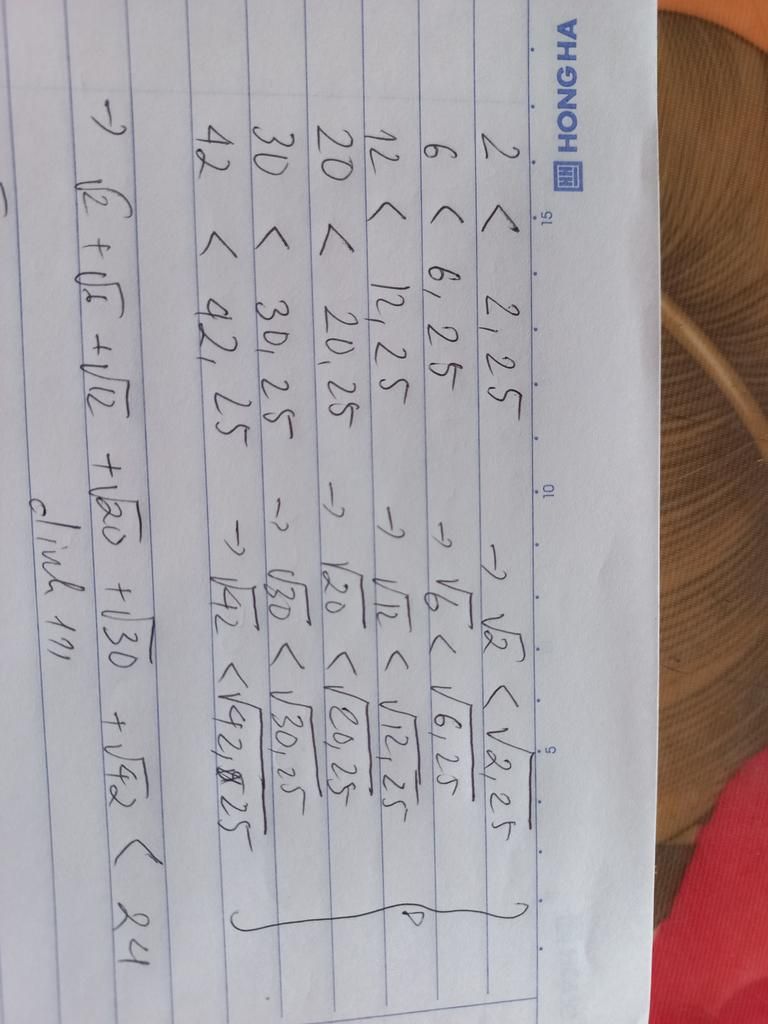 HN HONG HA
15 10 5
2 < 2,25 → √2 < √2,25
6 < 6,25 → √6 < √6,25
12 < 12,25 → √12 < √12,25
20 < 20,25 → √20 < √20,25
30 < 30,25 → √30 < √30,25
42 < 42,25 → √42 < √42,25
→ √2 + √6 + √12 + √20 + √30 + √42 < 24